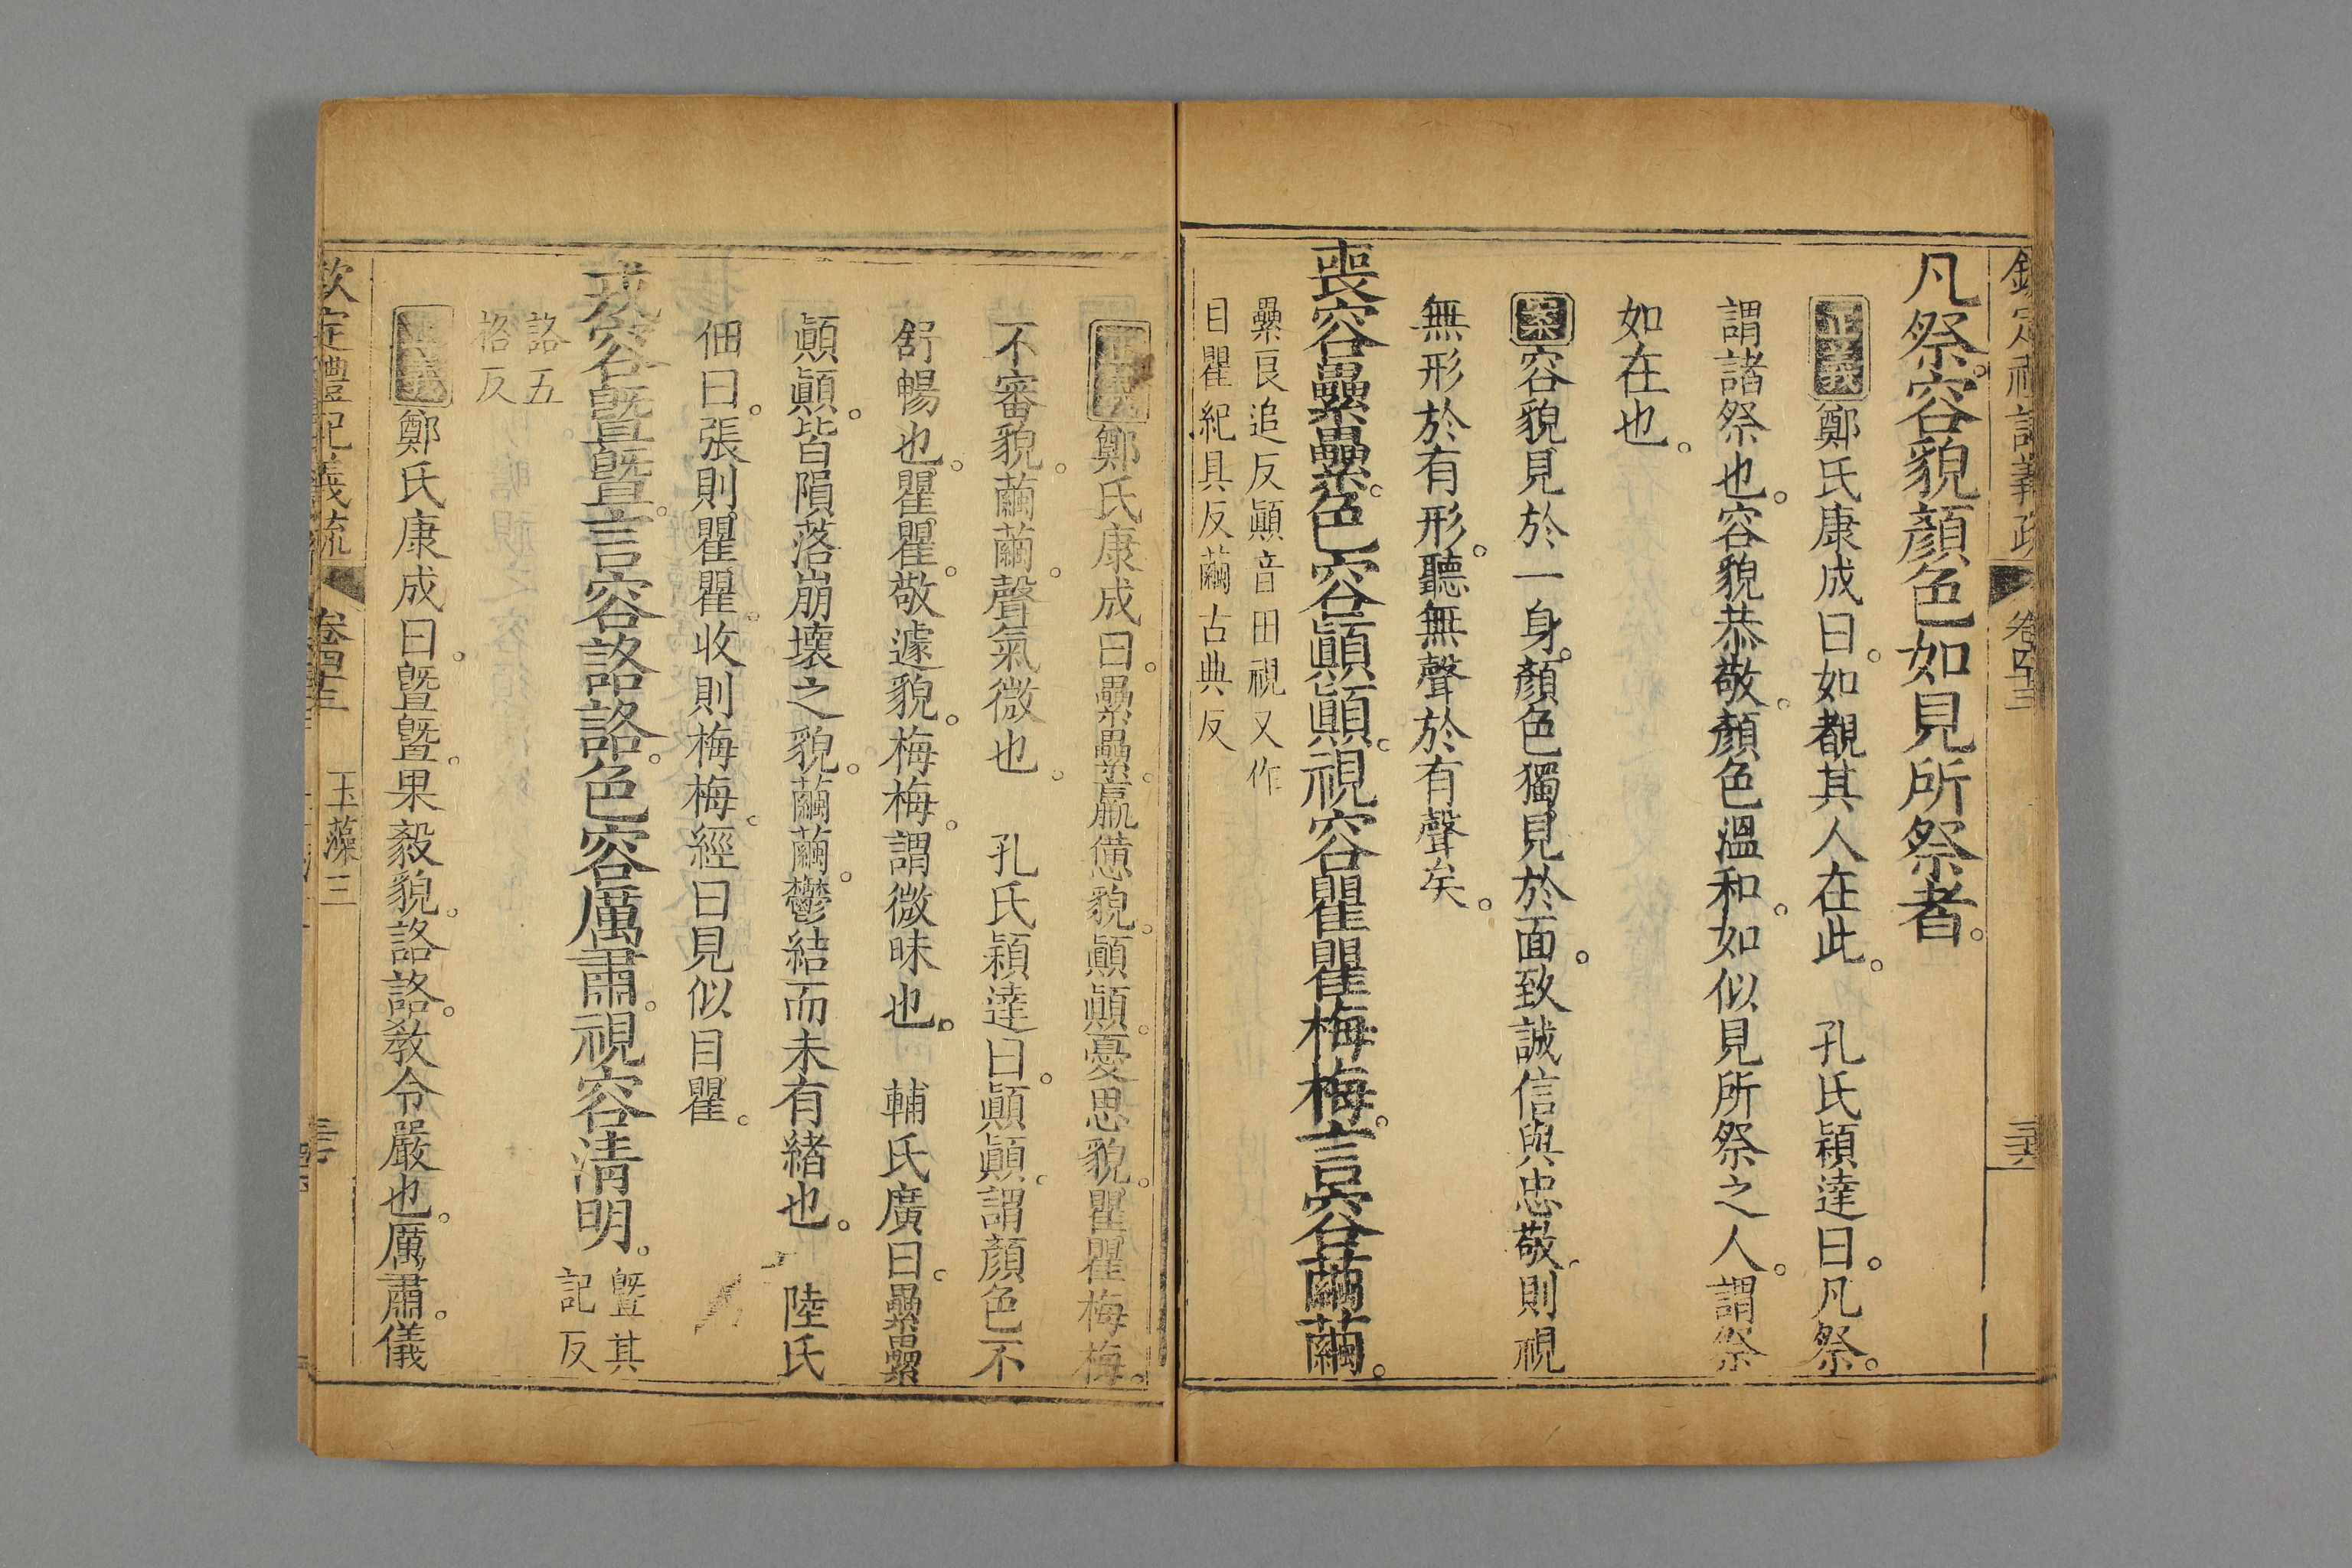 凡祭。容貌顏色如見所祭者。
正義鄭氏康成曰。如覩其人在此。　孔氏穎達曰。凡祭。
謂諸祭也。容貌恭敬。顏色溫和。如似見所祭之人。謂祭
如在也。
案容貌見於一身。顏色獨見於面。致誠信與忠敬。則視
無形於有形。聽無聲於有聲矣。
喪容纍纍。色容顚顚。視容瞿瞿梅梅。言容繭繭。
纍良追反顚音田視又作
目瞿紀具反繭古典反
正義鄭氏康成曰。纍纍。羸憊貌。顚顚。憂思貌。瞿瞿梅梅。
不審貌。繭繭。聲氣微也。　孔氏穎達曰。顚顚。謂顏色不
舒暢也。瞿瞿。敬遽貌。梅梅。謂微昧也。　輔氏廣曰。纍纍
顚顚。皆隕落崩壞之貌。繭繭。鬱結而未有緒也。　陸氏
佃曰。張則瞿瞿。收則梅梅。經曰見似目瞿。
戎容曁曁。言容詻詻。色容厲肅。視容淸明。曁其
記反
詻五
格反
正義鄭氏康成曰。曁曁。果毅貌。詻詻。敎令嚴也。厲肅。儀
欽定禮記義疏　卷四十三　玉藻三